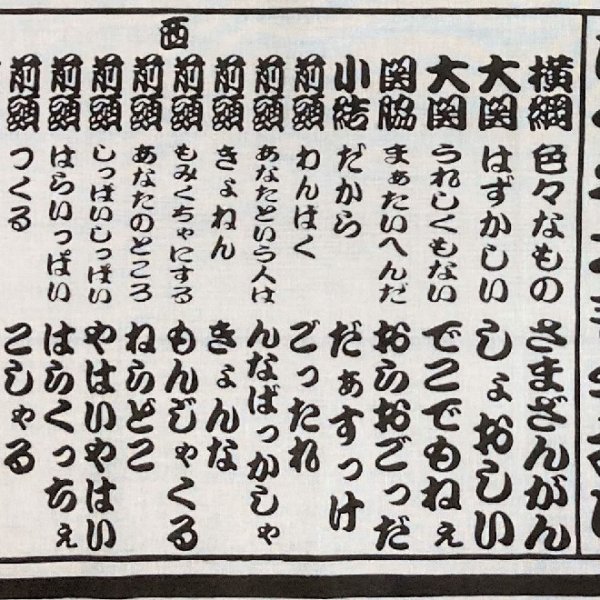 西
横綱 色々なもの さまざんがん
大関 はずかしい しょおしい
大関 うれしくもない でこでもねぇ
関脇 まぁたいへんだ おらおごっだ
小結 だから だぁすっけ
前頭 わんぱく ごったれ
前頭 あなたという人は んなばっかしゃ
前頭 きょねん きょんな
前頭 もみくちゃにする もんじゃくる
前頭 あなたのところ ねらどこ
前頭 しっぱいしっぱい やばいやばい
前頭 はらいっぱい はらくっちぇ
前頭 つくる こしゃる